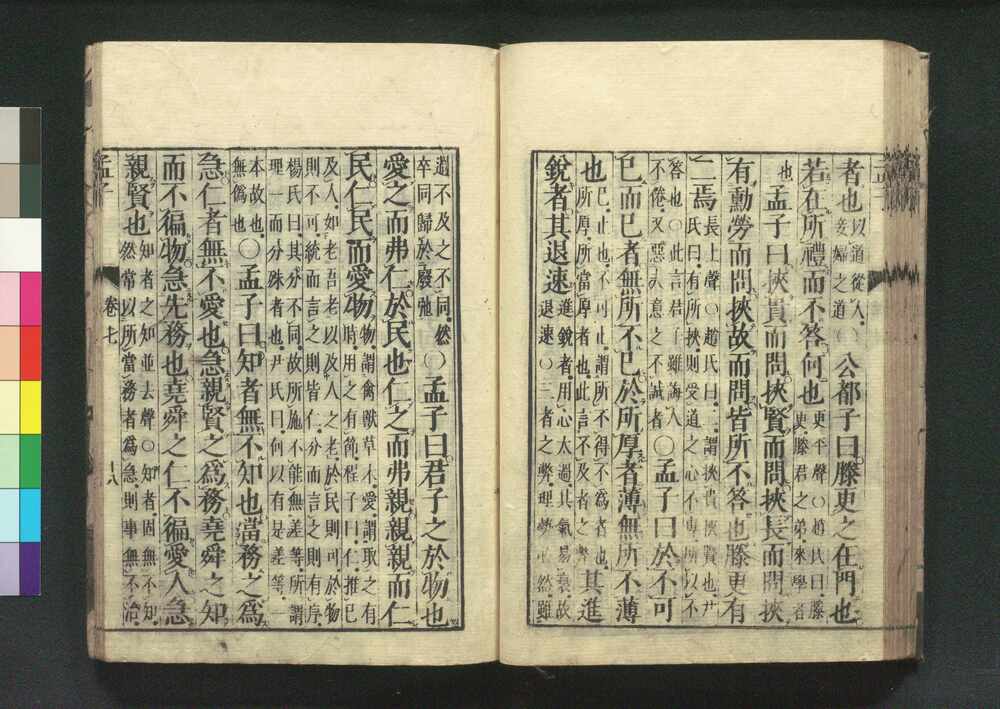 者也以道從人妾婦之道○公都子曰滕更之在門也
若在所禮而不答何也更平聲○趙氏曰滕更滕君之弟來學者
也孟子曰挾貴而問挾賢而問挾長而問挾
有勳勞而問挾故而問皆所不答也滕更有
二焉長上聲○趙氏曰二謂挾貴挾賢也尹氏曰有所挾則受道之心不專所以不
答也○此言君子雖誨人不倦又惡人意之不誠者○孟子曰於不可
已而已者無所不已於所厚者薄無所不薄
也已止也不可止謂所不得不為者也所厚所當厚者也此言不及者之弊其進
銳者其退速進銳者用心太過其氣易衰故退速○三者之弊理勢必然雖
過不及之不同然卒同歸於廢弛○孟子曰君子之於物也
愛之而弗仁於民也仁之而弗親親親而仁
民仁民而愛物物謂禽獸草木愛謂取之有時用之有節程子曰仁推己
及人如老吾老以及人之老於民則可於物則不可統而言之則皆仁分而言之則有序
楊氏曰其分不同故所施不能無差等所謂理一而分殊者也尹氏曰何以有是差等一
本故也無偽也○孟子曰知者無不知也當務之為
急仁者無不愛也急親賢之為務堯舜之知
而不徧物急先務也堯舜之仁不徧愛人急
親賢也知者之知並去聲○知者固無不知然常以所當務者為急則事無不治
孟子
卷七
十八